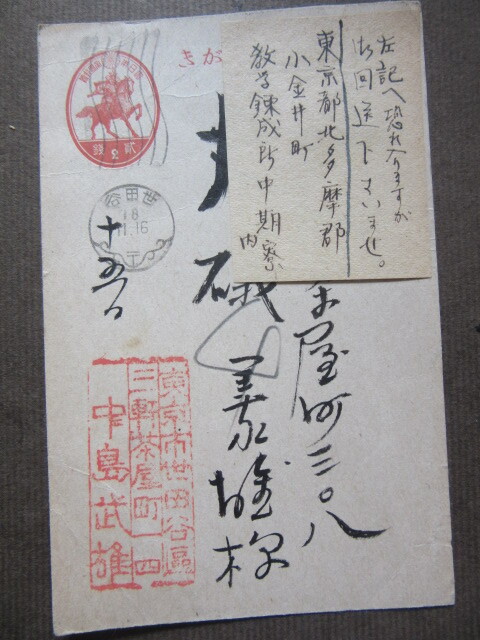 きが
左記へ恐れ入りますが
御回送下さいませ。
東京都北多摩郡
小金井町
教学錬成所中期寮
内
屋町三〇八
磯義雄様
世田谷
18
1.16
十五日
東京市世田谷區
三軒茶屋町一四
中島武雄